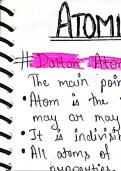 ATOMI
# Dalton Atom
The main poin
• Atom is the
may or may
• It is indivisib
• All atoms of